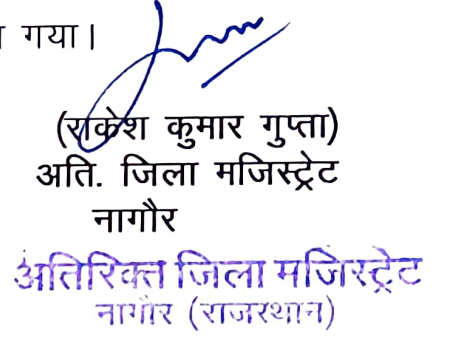 गया।
(राकेश कुमार गुप्ता)
अति. जिला मजिस्ट्रेट
नागौर
अतिरिक्त जिला मजिस्ट्रेट
नागौर (राजस्थान)